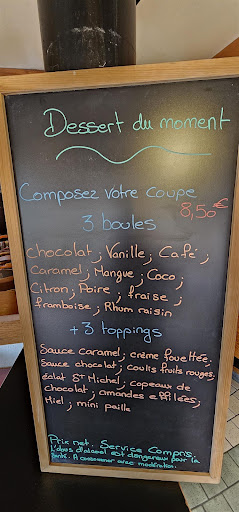 Dessert du moment
Composez votre coupe
8,50€
3 boules
chocolat ; Vanille ; Café ;
Caramel ; Mangue ; Coco ;
Citron ; Poire ; fraise ;
framboise ; Rhum raisin
+3 toppings
Sauce caramel ; crème fouettée ;
Sauce chocolat ; coulis fruits rouges ;
éclat St Michel ; copeaux de
chocolat ; amandes effilées ;
Miel ; mini paille
Prix net. Service Compris.
L'abus d'alcool est dangereux pour la
santé. A consommer avec modération.